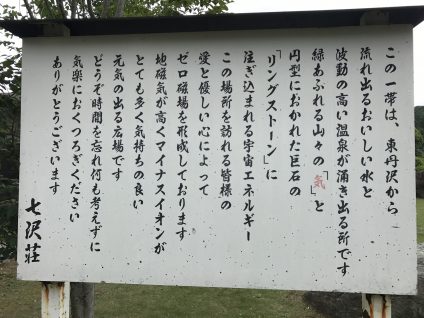 この一帯は、東丹沢から
流れ出るおいしい水と
波動の高い温泉が涌き出る所です
緑あふれる山々の「気」と
円型におかれた巨石の
「リングストーン」に
注ぎ込まれる宇宙エネルギー
この場所を訪れる皆様の
愛と優しい心によって
ゼロ磁場を形成しております
地磁気が高くマイナスイオンが
とても多く気持ちの良い
元気の出る広場です
どうぞ時間を忘れ何も考えずに
気楽におくつろぎください
ありがとうございます
七沢荘